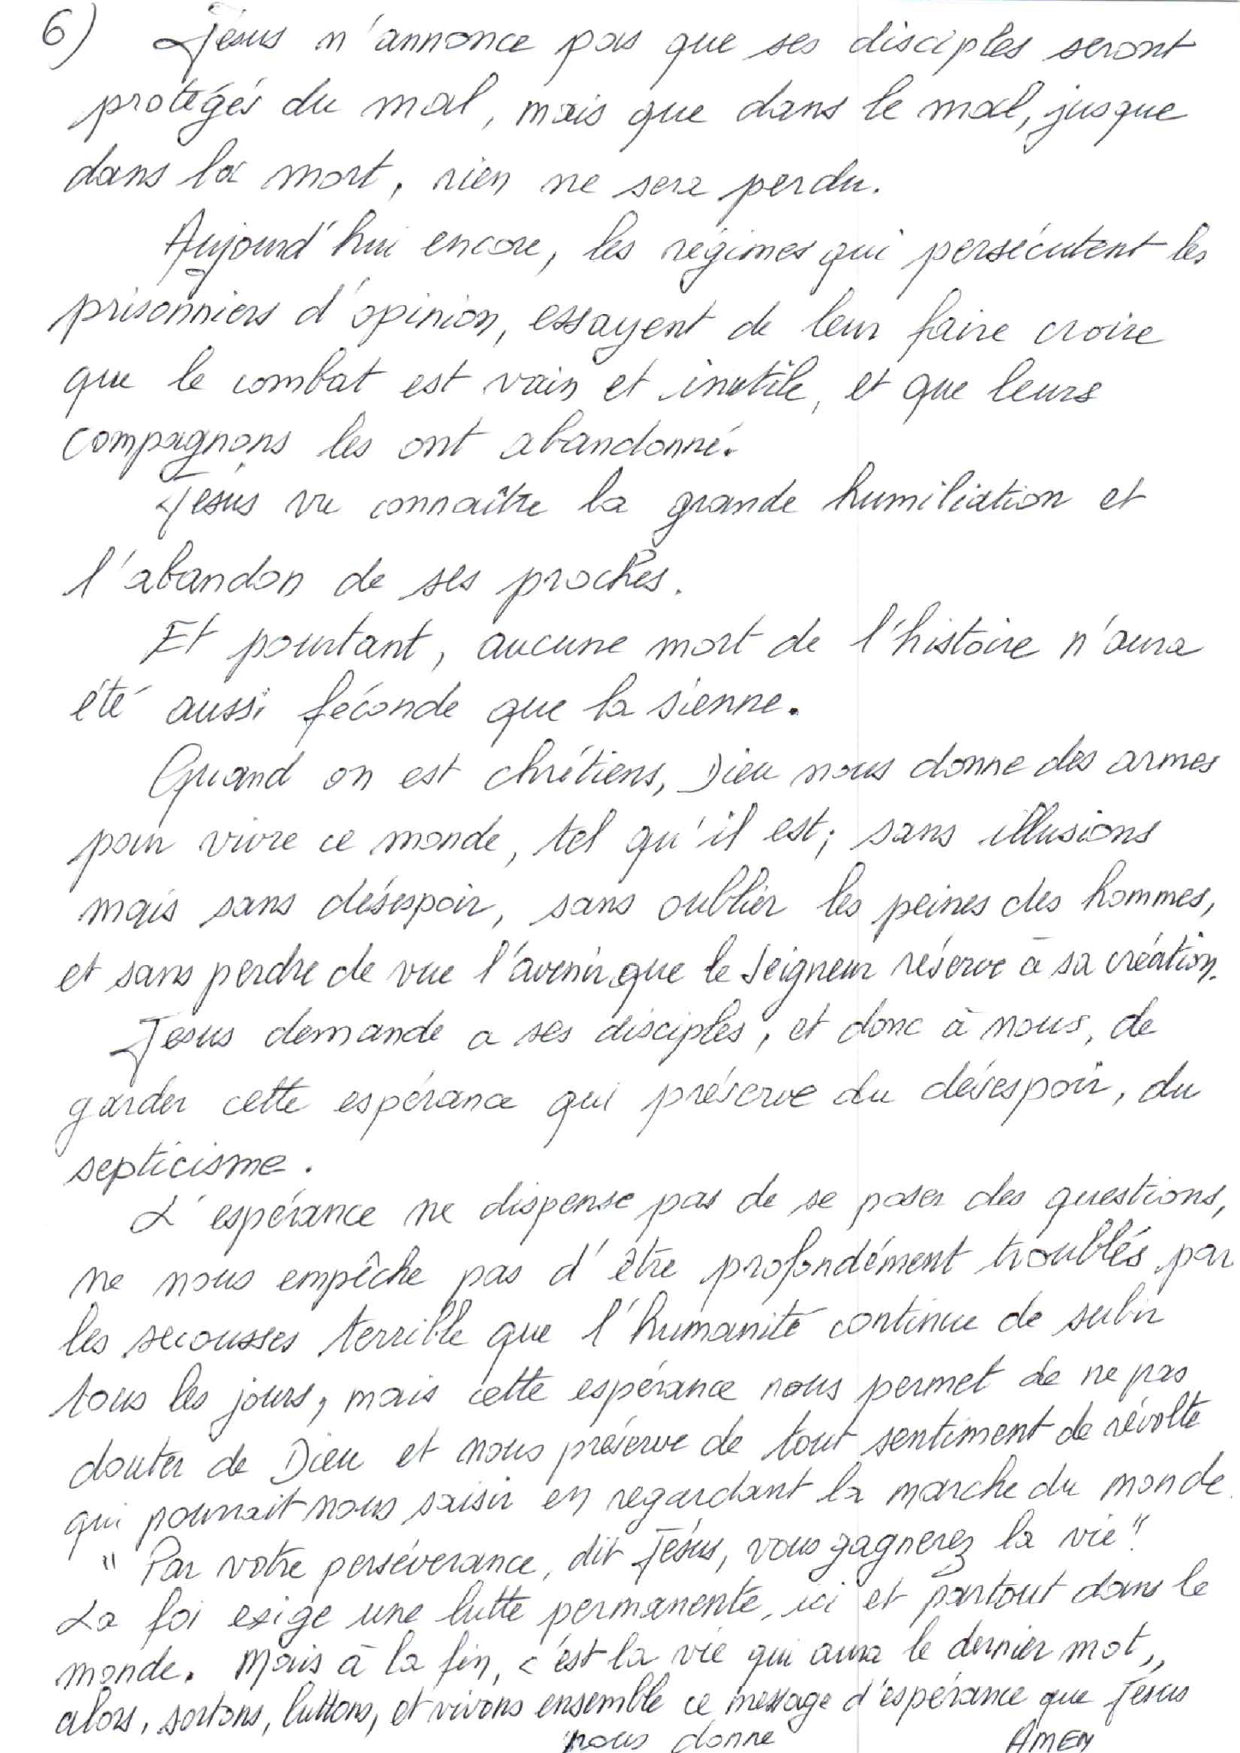 6) Jésus n'annonce pas que ses disciples seront
protégés du mal, mais que dans le mal, jusque
dans la mort, rien ne sera perdu.
Aujourd'hui encore, les régimes qui persécutent les
prisonniers d'opinion, essayent de leur faire croire
que le combat est vain et inutile, et que leurs
compagnons les ont abandonné.
Jésus va connaître la grande humiliation et
l'abandon de ses proches.
Et pourtant, aucune mort de l'histoire n'aura
été aussi féconde que la sienne.
Quand on est chrétiens, Dieu nous donne des armes
pour vivre ce monde, tel qu'il est; sans illusions
mais sans désespoir, sans oublier les peines des hommes,
et sans perdre de vue l'avenir que le Seigneur réserve à sa création.
Jésus demande a ses disciples, et donc à nous, de
garder cette espérance qui préserve du désespoir, du
septicisme.
L'espérance ne dispense pas de se poser des questions,
ne nous empêche pas d'être profondément troublés par
les secousses terrible que l'humanité continue de subir
tous les jours, mais cette espérance nous permet de ne pas
douter de Dieu et nous préserve de tout sentiment de révolte
qui pourrait nous saisir en regardant la marche du monde.
"Par votre persévérance, dit Jésus, vous gagnerez la vie"
La foi exige une lutte permanente, ici et partout dans le
monde. Mais à la fin, c'est la vie qui aura le dernier mot,,
alors, sortons, luttons, et vivons ensemble ce message d'espérance que Jésus
nous donne AMEN